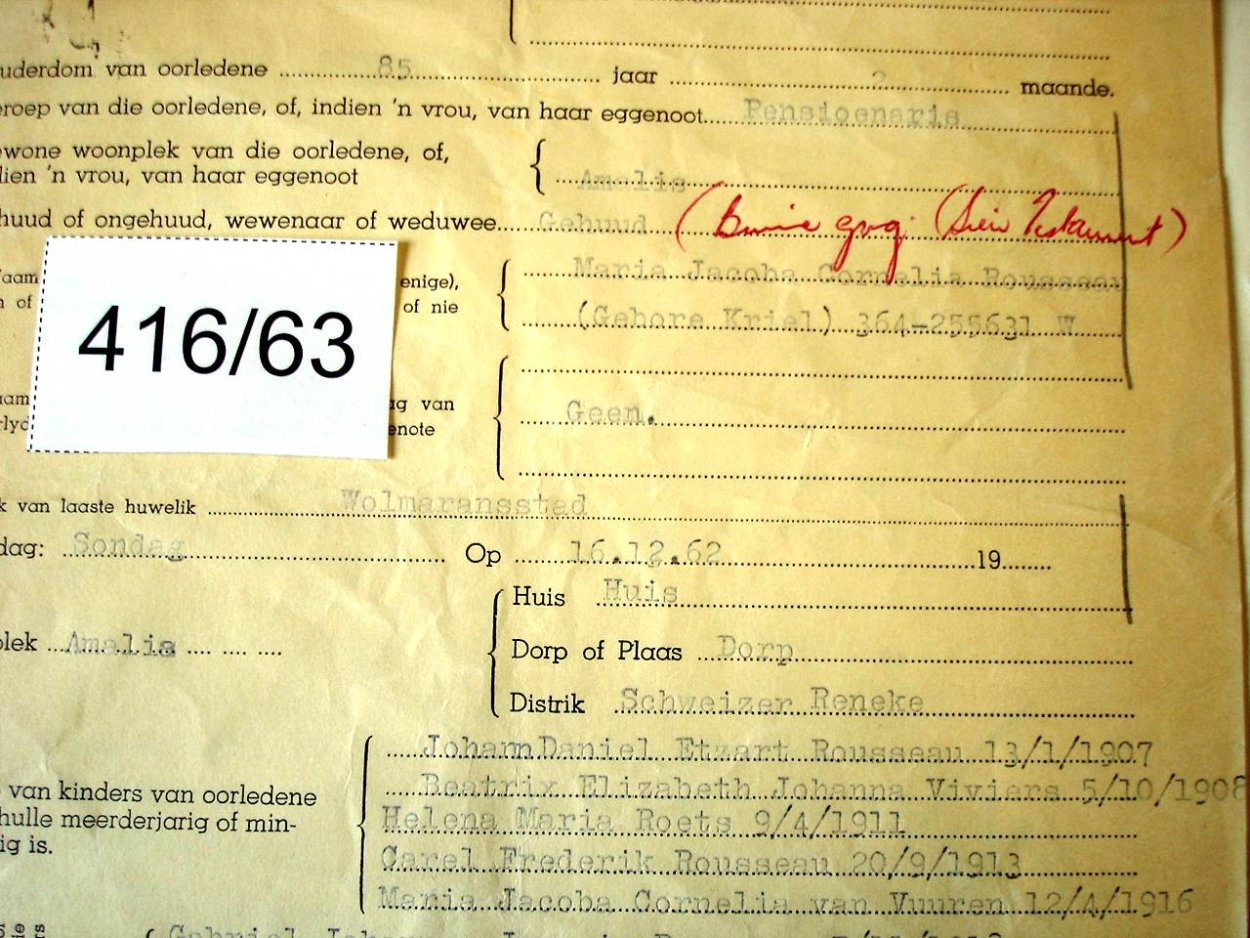 uderdom van oorledene 85 jaar 2 maande.
eroep van die oorledene, of, indien 'n vrou, van haar eggenoot Pensioenaris
ewone woonplek van die oorledene, of,
dien 'n vrou, van haar eggenoot Amalia
huud of ongehuud, wewenaar of weduwee Gehuud (Binne gvg. (Sien Testament)
aam enige), Maria Jacoba Cornelia Rousseau
n of of nie (Gebore Kriel) 364-255631 W
416/63
aam ag van Geen.
rlyd enote
k van laaste huwelik Wolmaransstad
dag: Sondag Op 16.12.62 19
Huis Huis
plek Amalia Dorp of Plaas Dorp
Distrik Schweizer Reneke
Johann Daniel Etzart Rousseau 13/1/1907
Beatrix Elizabeth Johanna Viviers 5/10/1908
van kinders van oorledene Helena Maria Roets 9/4/1911
hulle meerderjarig of min-
ig is. Carel Frederik Rousseau 20/9/1913
Maria Jacoba Cornelia van Vuuren 12/4/1916
Gabriel